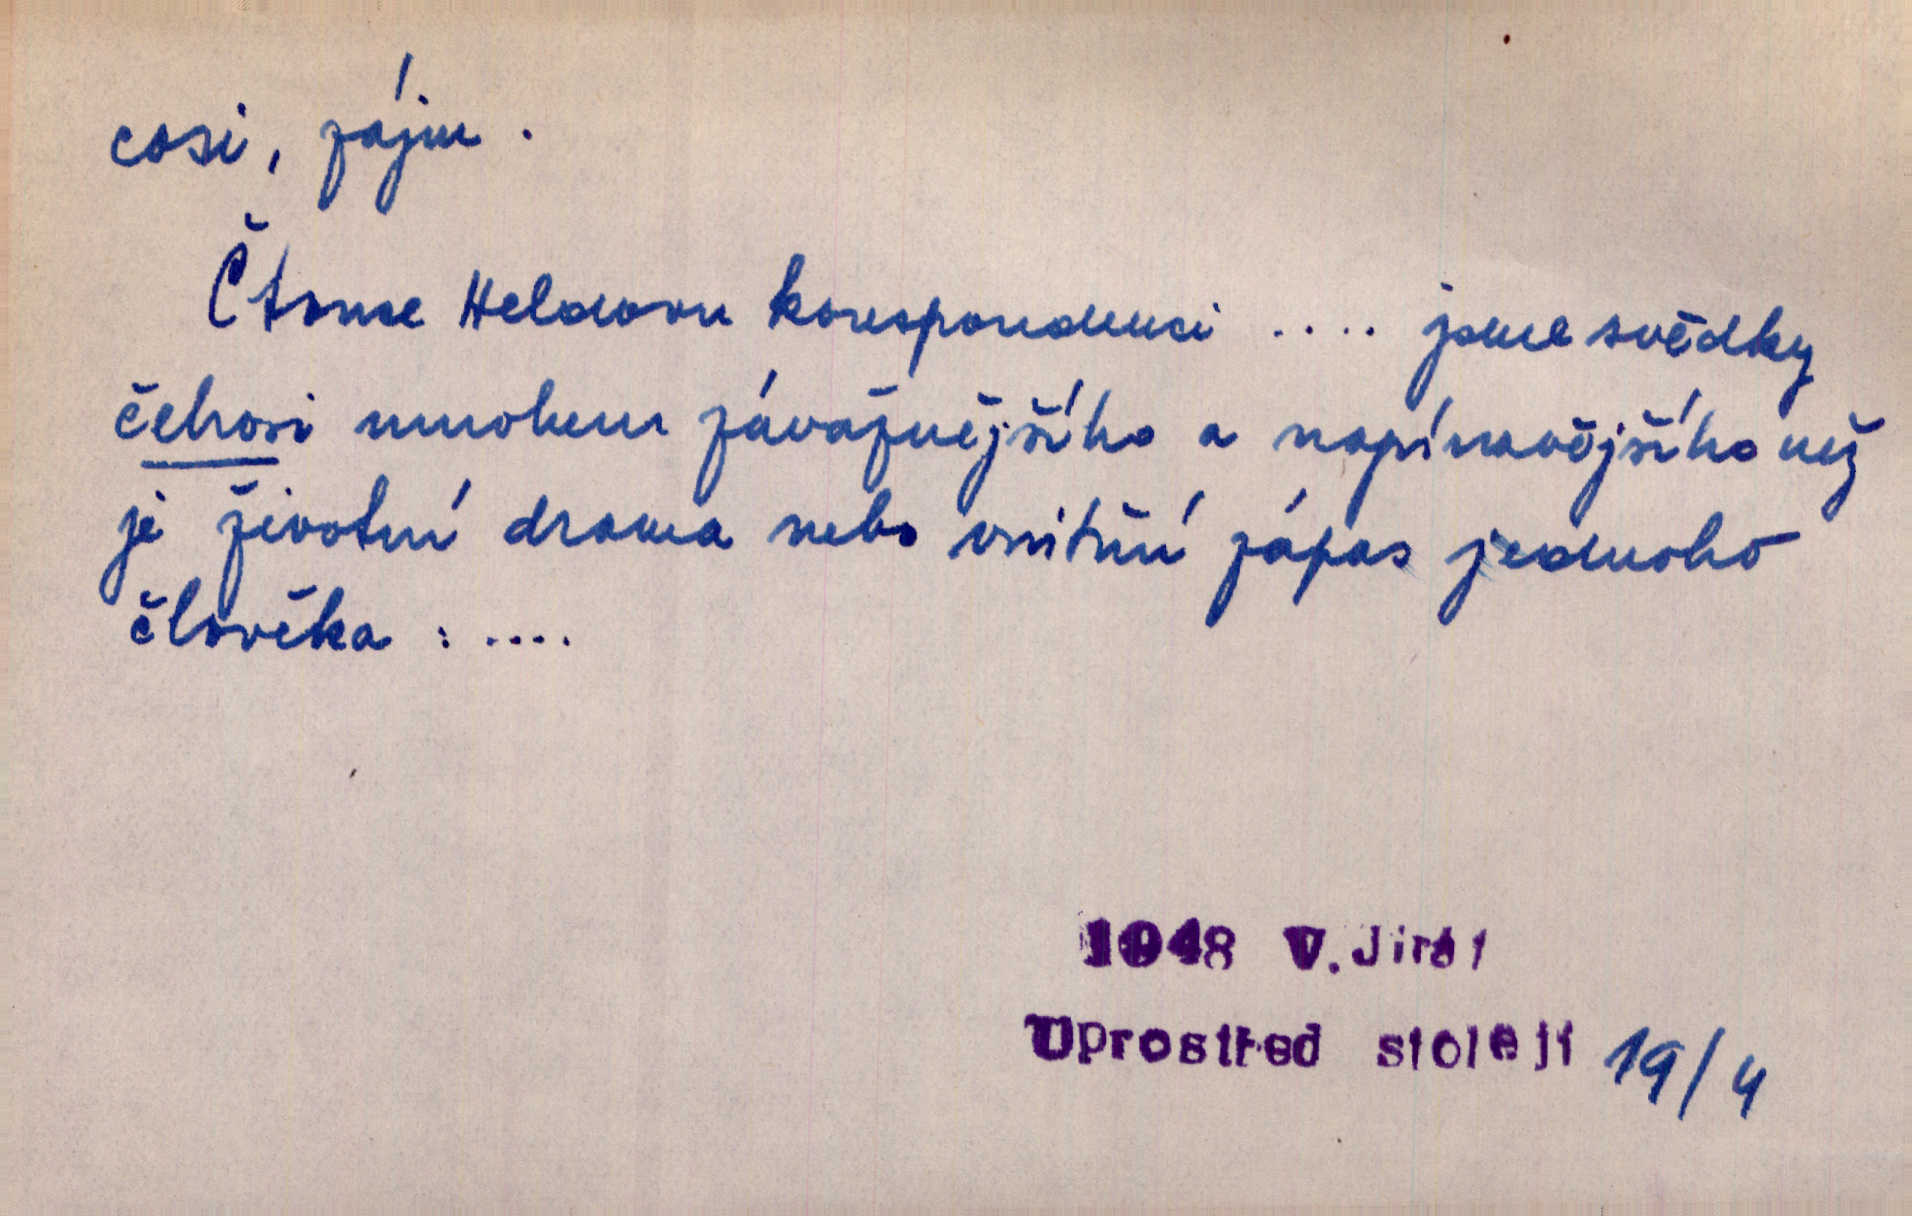 cosi, zájm.
Čtome Heldovu korespondenci .... jsme svědky
čehosi mnohem závažnějšího a napínavějšího než
je životní drama nebo vnitřní zápas jednoho
člověka : ....
1948 V. Jirát
Uprostřed století 19/4